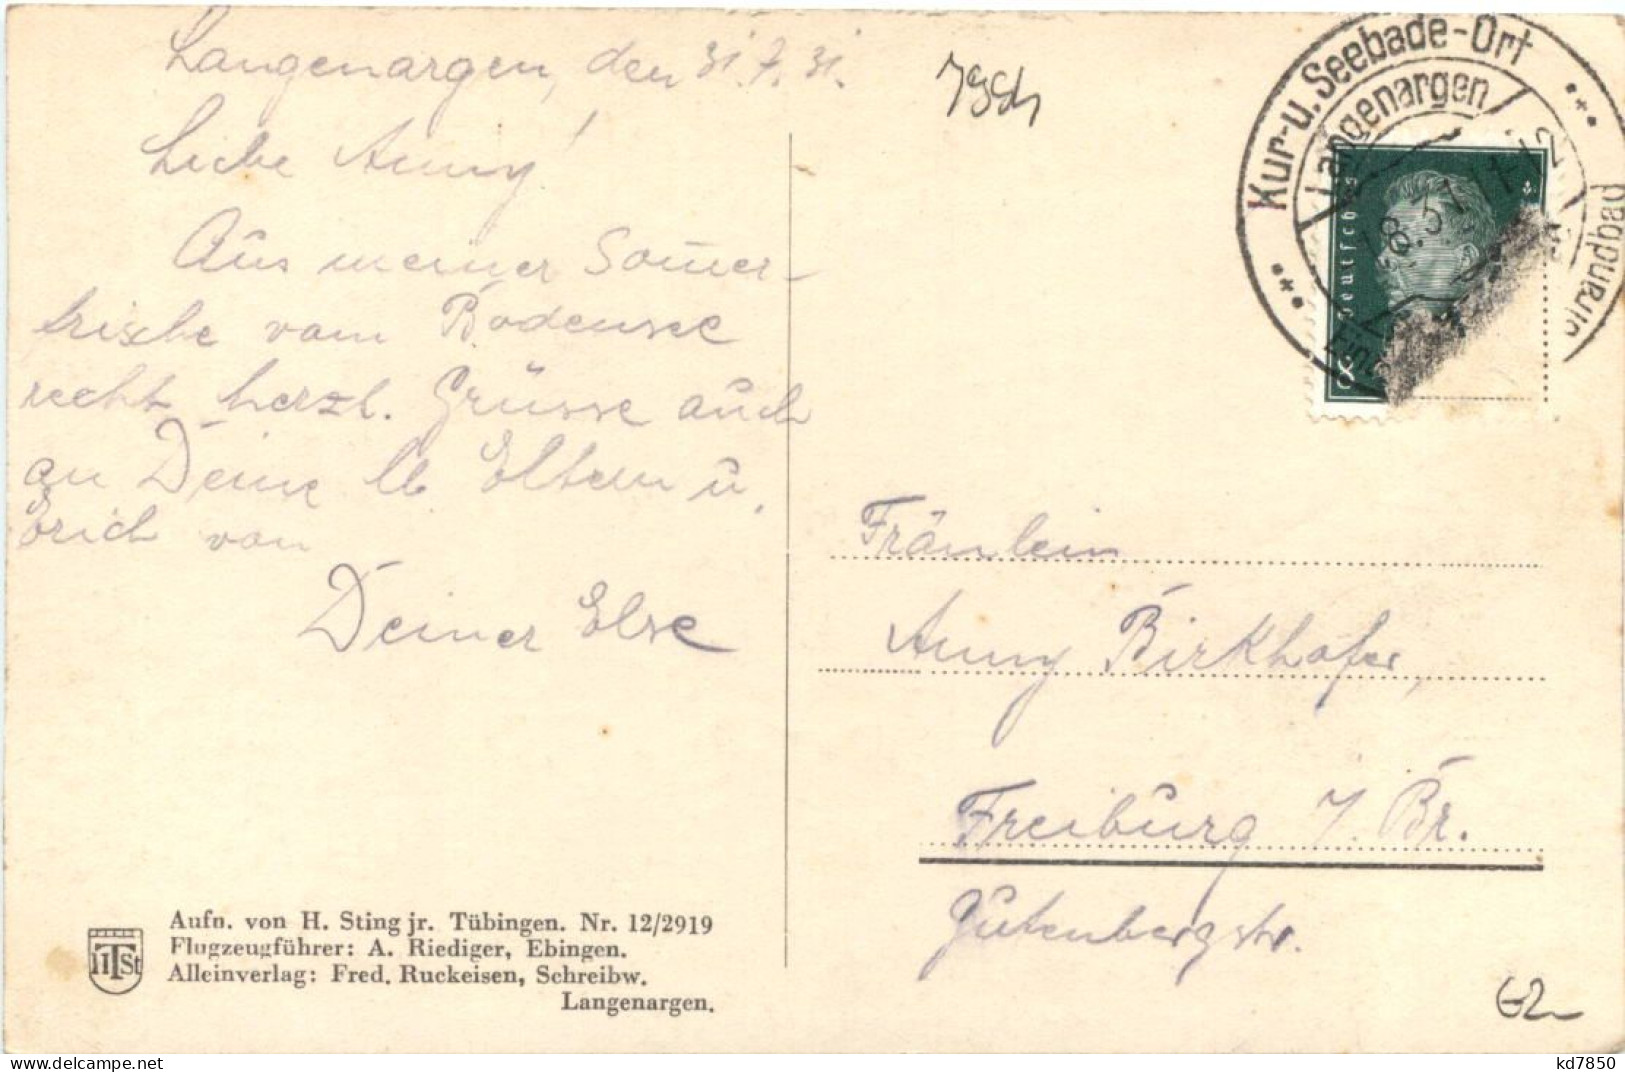 Langenargen, den 31.7.31.
Liebe Anny!
Aus meiner Somer-
frische vom Bodensee
recht herzl. Grüsse auch
an Deine lb Eltern u.
Erich von
Deiner Else
Kur-u. Seebade-Ort
Langenargen
Strandbad
Deutsches
8
Fräulein
Anny Birkhofer,
Freiburg i. Br.
Gutenbergstr.
HTSt
Aufn. von H. Sting jr. Tübingen. Nr. 12/2919
Flugzeugführer: A. Riediger, Ebingen.
Alleinverlag: Fred. Ruckeisen, Schreibw.
Langenargen.
kd7850